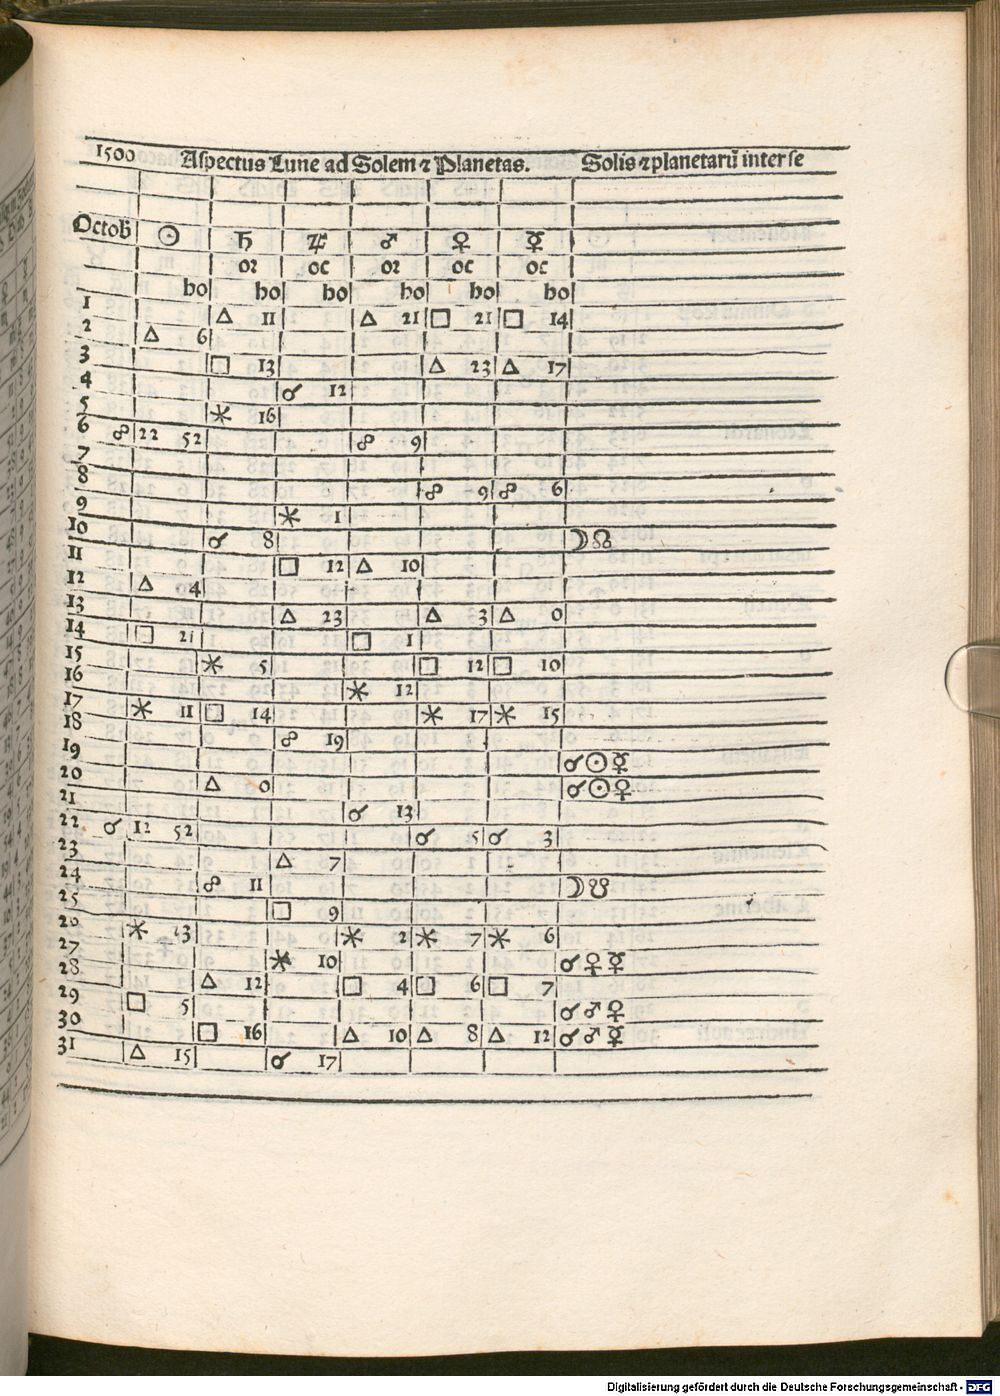 1500 Aspectus Lune ad Solem ⁊ Planetas. Solis ⁊ planetarū inter se
Octob ☉ ♄ ♃ ♂ ♀ ☿
oꝛ oc oꝛ oc oc
ho ho ho ho ho ho
1 △ 11 △ 21 □ 21 □ 14
2 △ 6
3 □ 13 △ 23 △ 17
4 ☌ 12
5 ⚹ 16
6 ☍ 22 52 ☍ 9
7
8 ☍ 9 ☍ 6
9 ⚹ 1
10 ☌ 8 ☽☊
11 □ 12 △ 10
12 △ 4
13 △ 23 △ 3 △ 0
14 □ 21 □ 1
15 ⚹ 5 □ 12 □ 10
16 ⚹ 12
17 ⚹ 11 □ 14 ⚹ 17 ⚹ 15
18 ☍ 19
19 ☌☉☿
20 △ 0 ☌☉♀
21 ☌ 13
22 ☌ 12 52 ☌ 5 ☌ 3
23 △ 7
24 ☍ 11 ☽☋
25 □ 9
26 ⚹ 13 ⚹ 2 ⚹ 7 ⚹ 6
27 ⚹ 10 ☌♀☿
28 △ 12 □ 4 □ 6 □ 7
29 □ 5 ☌♂♀
30 □ 16 △ 10 △ 8 △ 12 ☌♂☿
31 △ 15 ☌ 17
Digitalisierung gefördert durch die Deutsche Forschungsgemeinschaft - DFG